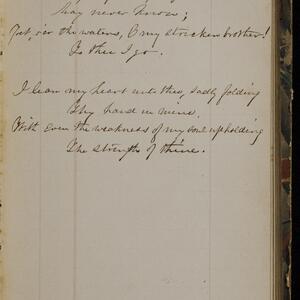 May never know;
Yet, o'er the waters, O my stricken brother!
To thee I go.
I lean my heart unto thee, sadly folding
Thy hand in mine,
With even the weakness of my soul upholding
The strength of thine.